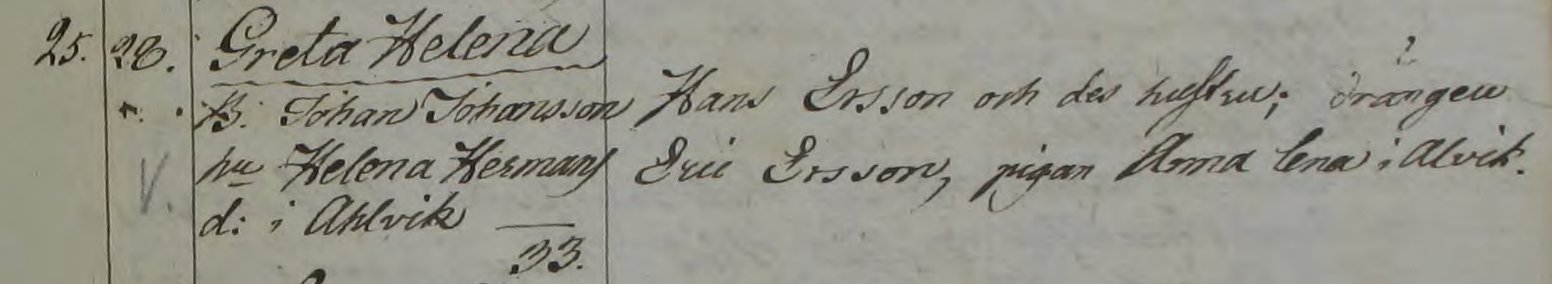 25. 28. Greta Helena
B. Johan Johansson Hans Ersson och des hustru; drängen
hu Helena Hermans Eric Ersson, pigan Anna Lena i Alvik.
V. d: i Ahlvik —
33.